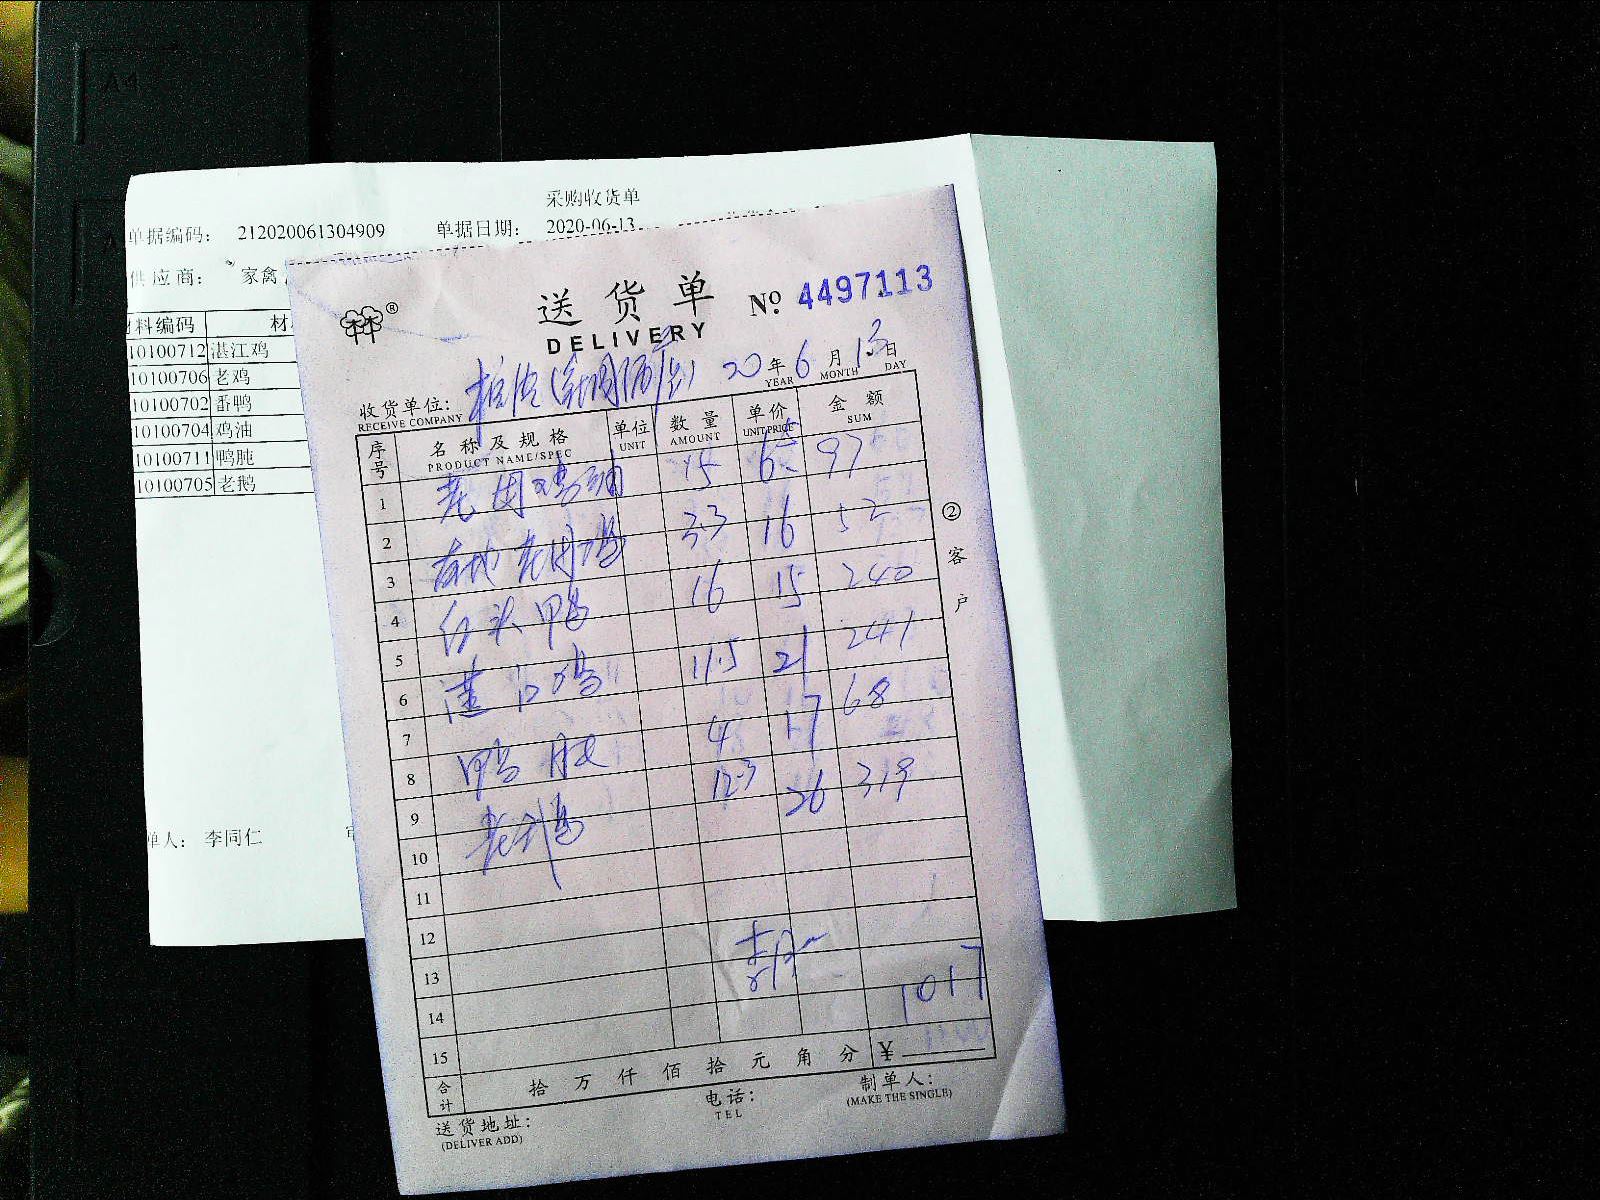 采购收货单
单据编码： 212020061304909 单据日期： 2020-06-13
供应商： 家禽
材料编码 材
10100712 湛江鸡
10100706 老鸡
10100702 番鸭
10100704 鸡油
10100711 鸭肫
10100705 老鹅
单人： 李同仁
送货单 No. 4497113
DELIVERY
20 年 6 月 13 日
YEAR MONTH DAY
收货单位：
RECEIVE COMPANY
序号 名称及规格 单位 数量 单价 金额
PRODUCT NAME/SPEC UNIT AMOUNT UNIT PRICE SUM
1 15 6.5 97
2 3.3 16 52
3 老母鸡
4 红头鸭 16 15 240
5 11.5 21 241
6 湛江鸡
7 4 17 68
8 鸭肫 12.3 26 319
9 老鹅
10
11
12
13
14 1017
15
合计 拾 万 仟 佰 拾 元 角 分 ¥
送货地址： 电话： 制单人：
(DELIVER ADD) TEL (MAKE THE SINGLE)
② 客户
A4